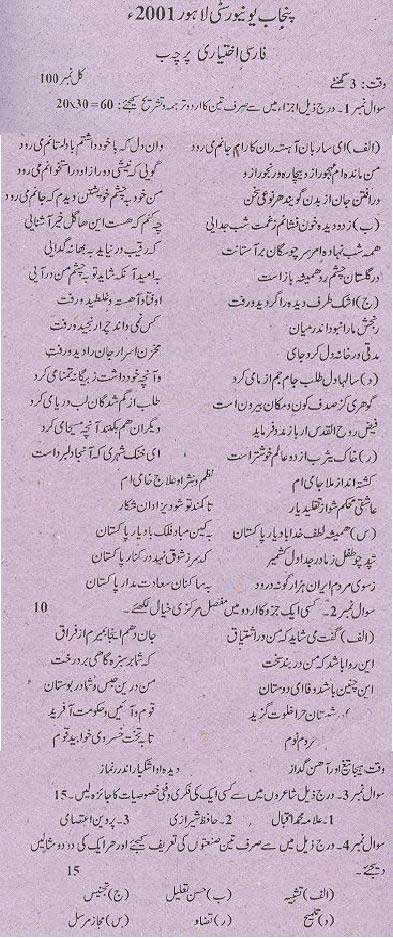 پنجاب یونیورسٹی لاہور 2001ء
فارسی اختیاری پرچہ ب
وقت: 3 گھنٹے کل نمبر 100
سوال نمبر 1۔ درج ذیل اجزاء میں سے صرف تین کا اردو ترجمہ و تشریح کیجئے: 20x30=60
(الف) ای ساربان آہستہ ران کارام جانم می رود وان دل کہ با خود داشتم با دلستانم می رود
من ماندہ ام مہجور از و بیچارہ و رنجور از و گویی کہ نیشی دور از و در استخوانم می رود
در رفتن جان از بدن گویند ھر نوعی سخن من خود بہ چشم خویشتن دیدم کہ جانم می رود
(ب) ز دو دیدہ خون فشانم زغمت شب جدایی چہ کنم کہ ھست این ھا گل خیر آشنایی
ھمہ شب نہادہ ام سر چو سگان بر آستانت کہ رقیب در نیاید بہ بھانہ گدایی
در گلستان چشمم ز چہ ھمیشہ باز است بہ امید آنکہ شاید تو بہ چشم من در آیی
(ج) اشک طرف دیدہ را گردید و رفت اوفتاد آھستہ و غلطید و رفت
رنجش ما را نبود اندر میان کس نمی داند چرا رنجید و رفت
مدتی در خانہ دل کرد جای مخزن اسرار جان را دید و رفت
(د) سالہا دل طلب جام جم از ما می کرد وآنچہ خود داشت ز بیگانہ تمنا می کرد
گوھری کز صدف کون و مکان بیرون است طلب از گم شدگان لب دریا می کرد
فیض روح القدس ار باز مدد فرماید دیگران ھم بکنند آنچہ مسیحا می کرد
(ر) خاک یثرب از دو عالم خوشتر است ای خنک شہری کہ آنجا دلبر است
کشتہ انداز ملا جامی ام نظم و نثر او علاج خامی ام
عاشقی محکم شو از تقلید یار تا کمند تو شود یزدان شکار
(س) ھمیشہ لطف خدا باد یار پاکستان بہ کین مباد فلک با دیار پاکستان
تپد چو طفل ز مادر جدا دل کشمیر کہ سر ز شوق نہد در کنار پاکستان
ز سوی مردم ایران ہزار گونہ درود بہ ساکنان سعادت مدار پاکستان
سوال نمبر 2۔ کسی ایک جزو کا اردو میں مفصل مرکزی خیال لکھئے۔ 10
(الف) گفت می شاید کہ من در اشتیاق جان دھم اینجا بمیرم از فراق
این روا باشد کہ من در بند سخت کہ شما بر سبزہ گاھی بر درخت
این چنین باشد وفای دوستان من درین حبس و شما در بوستان
شبستان حرا خلوت گزید قوم و آئین و حکومت آفرید
محروم نوم تا بہ تخت خسروی خوابید قوم
وقت ہیجا تیغ او آھن گداز دیدہ او اشکبار اندر نماز
سوال نمبر 3۔ درج ذیل شاعروں میں سے کسی ایک کی فکری و فنی خصوصیات کا جائزہ لیں۔ 15
1۔ علامہ محمد اقبال 2۔ حافظ شیرازی 3۔ پروین اعتصامی
سوال نمبر 4۔ درج ذیل میں سے صرف تین صنعتوں کی تعریف کیجئے اور ھر ایک کی دو دو مثالیں
دیجئے۔ 15
(الف) تشبیہ (ب) حسن تعلیل (ج) تجنیس
(د) تلمیح (ر) تضاد (س) مجاز مرسل